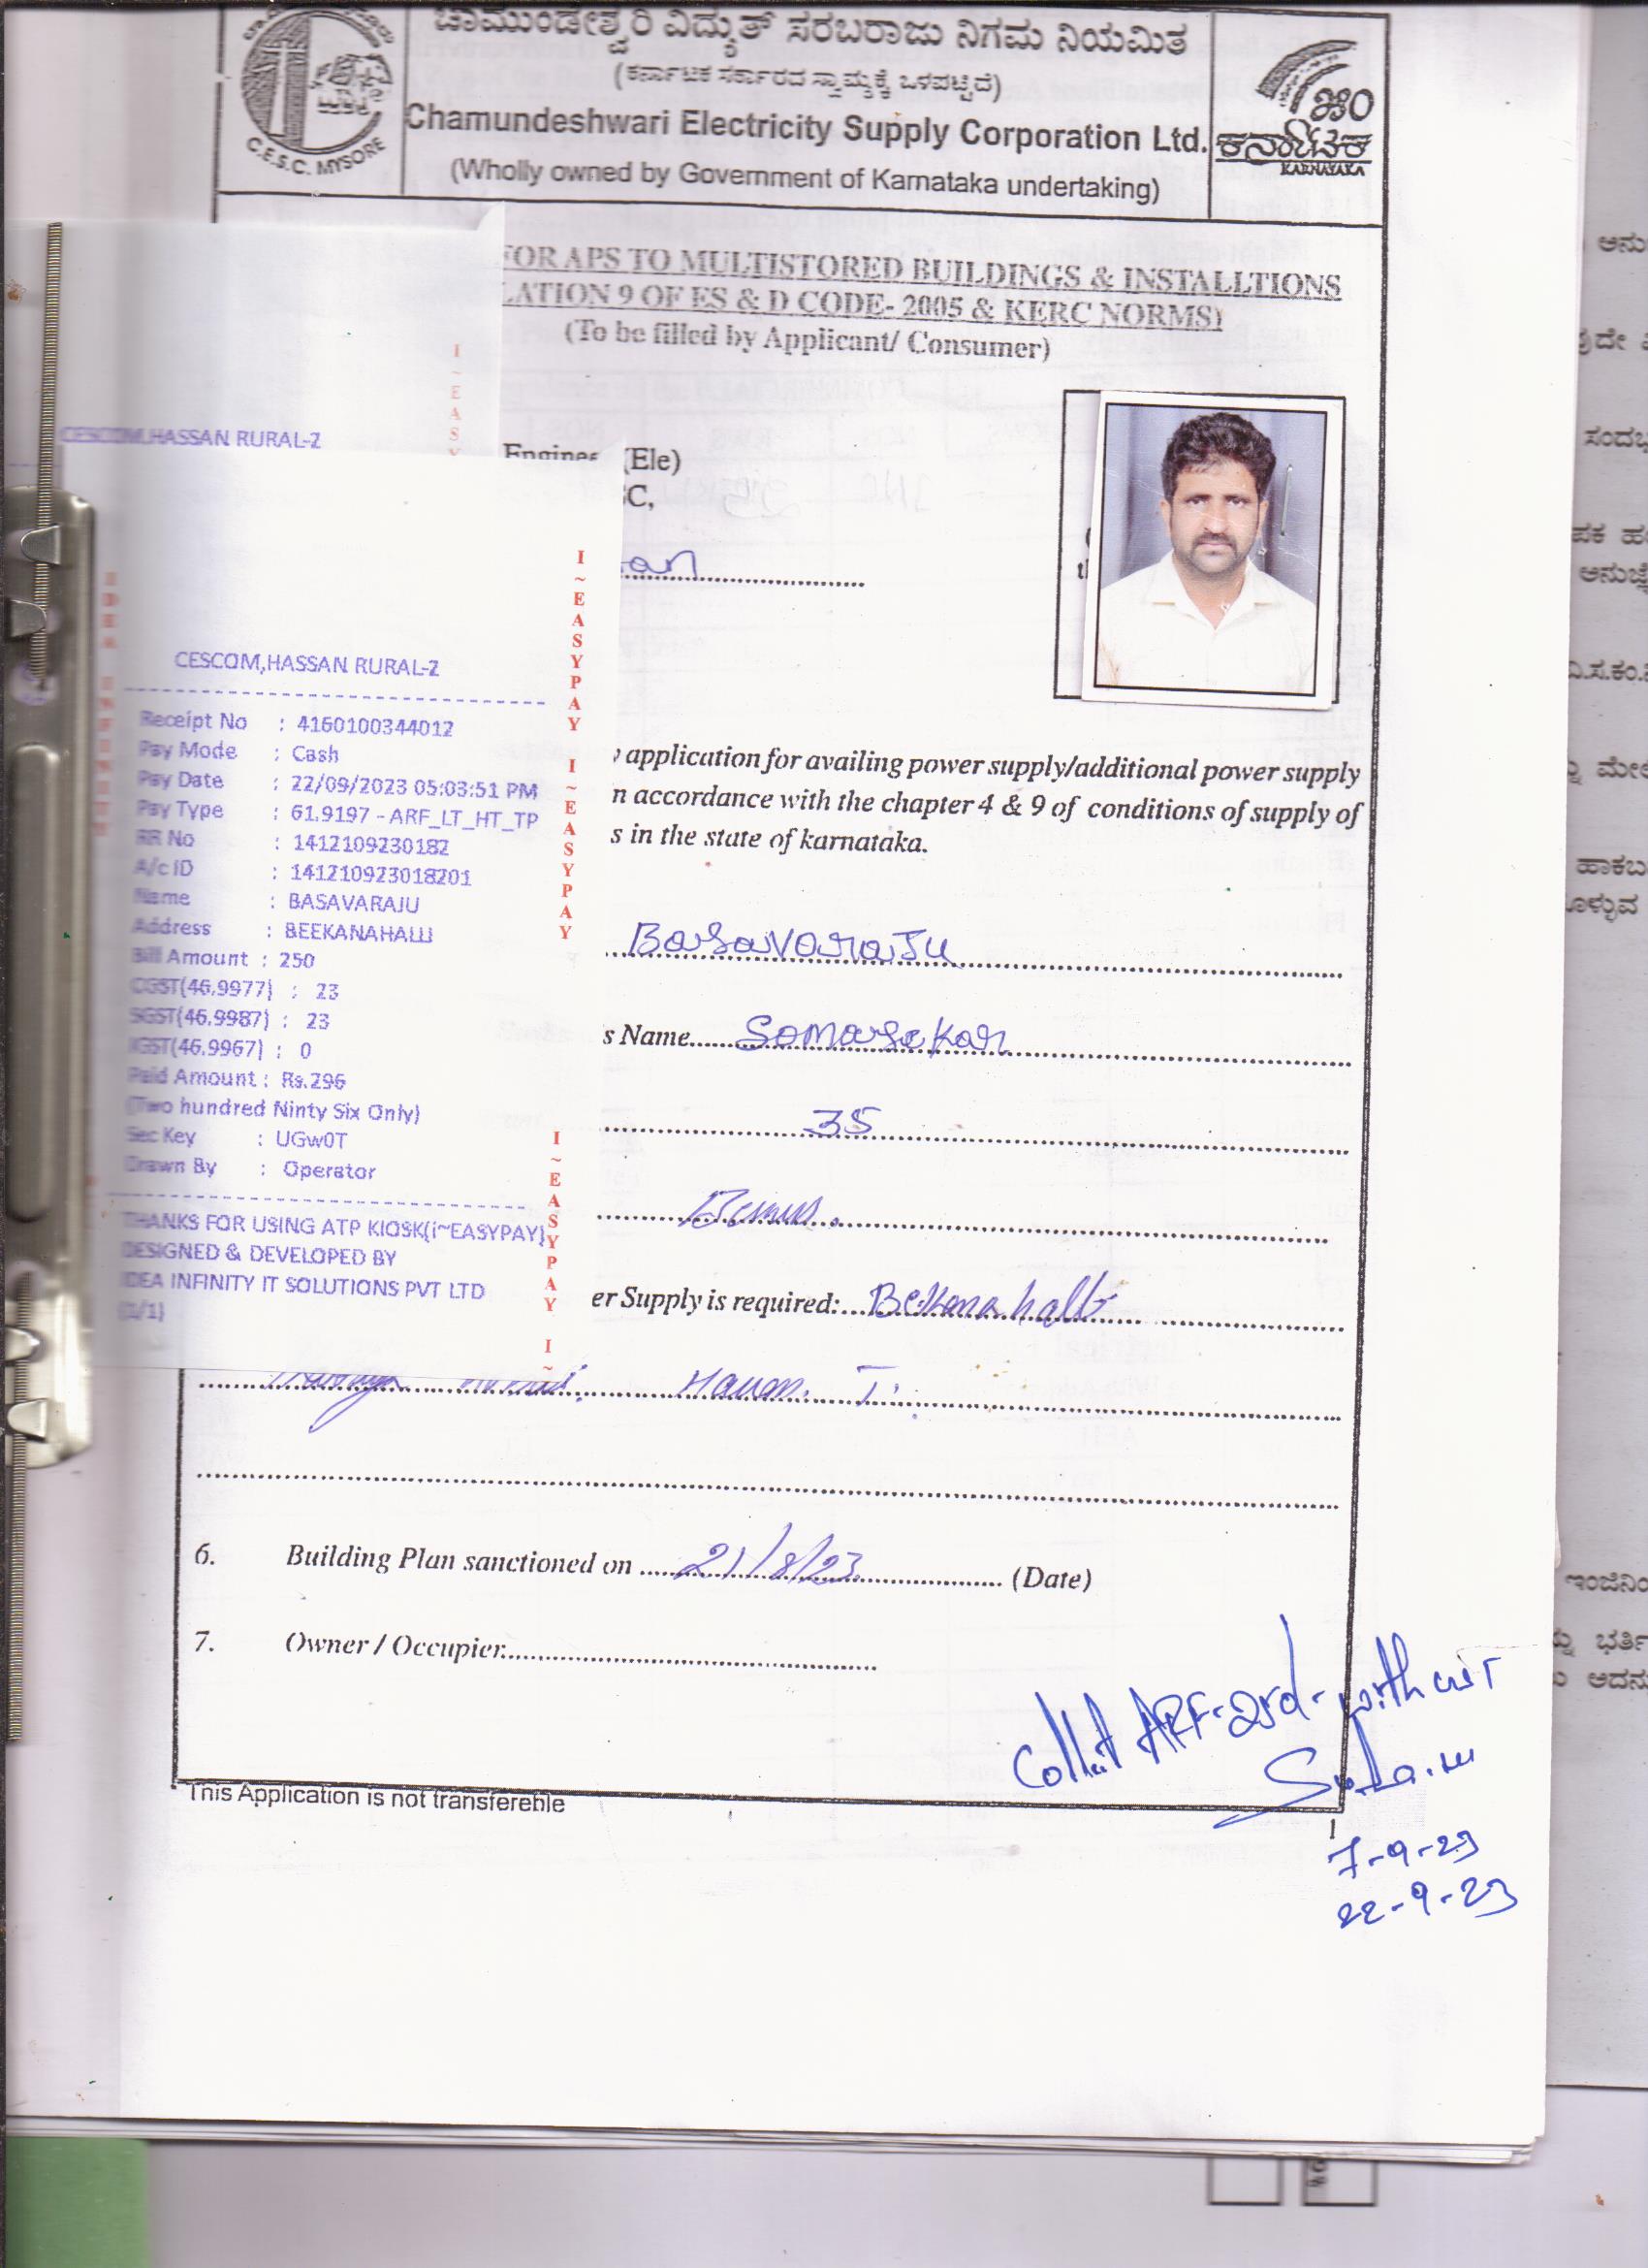 ಚಾಮುಂಡೇಶ್ವರಿ ವಿದ್ಯುತ್ ಸರಬರಾಜು ನಿಗಮ ನಿಯಮಿತ
(ಕರ್ನಾಟಕ ಸರ್ಕಾರದ ಸ್ವಾಮ್ಯಕ್ಕೆ ಒಳಪಟ್ಟಿದೆ)
Chamundeshwari Electricity Supply Corporation Ltd.
(Wholly owned by Government of Karnataka undertaking)
C.E.S.C. MYSORE
ಕರ್ನಾಟಕ
KARNATAKA
FOR APS TO MULTISTORED BUILDINGS & INSTALLTIONS
LATION 9 OF ES & D CODE- 2005 & KERC NORMS)
(To be filled by Applicant/ Consumer)
CESCOM,HASSAN RURAL-2
Engineer (Ele)
SC,
CESCOM,HASSAN RURAL-2
Receipt No : 4160100344012
Pay Mode : Cash
Pay Date : 22/09/2023 05:03:51 PM
Pay Type : 61.9197 - ARF_LT_HT_TP
RR No : 1412109230182
A/c ID : 141210923018201
Name : BASAVARAJU
Address : BEEKANAHALLI
Bill Amount : 250
CGST(46.9977) : 23
SGST(46.9987) : 23
IGST(46.9967) : 0
Paid Amount : Rs.296
(Two hundred Ninty Six Only)
Sec Key : UGw0T
Drawn By : Operator
THANKS FOR USING ATP KIOSK(i~EASYPAY)
DESIGNED & DEVELOPED BY
IDEA INFINITY IT SOLUTIONS PVT LTD
(1/1)
I~EASYPAY I~EASYPAY
I~EASYPAY I~
y application for availing power supply/additional power supply
n accordance with the chapter 4 & 9 of conditions of supply of
s in the state of karnataka.
Basavaraju
s Name Somasekar
35
er Supply is required: Bekanahalli
Hassan. T.
6. Building Plan sanctioned on 21/8/23 (Date)
7. Owner / Occupier:
Collect ARF-
7-9-23
22-9-23
This Application is not transfereble
1